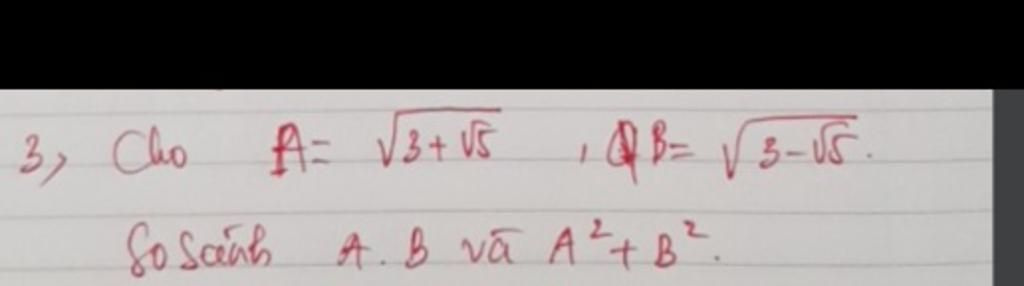 3, Cho A = √(3+√5) , B = √(3-√5).
So sánh A.B và A²+B².